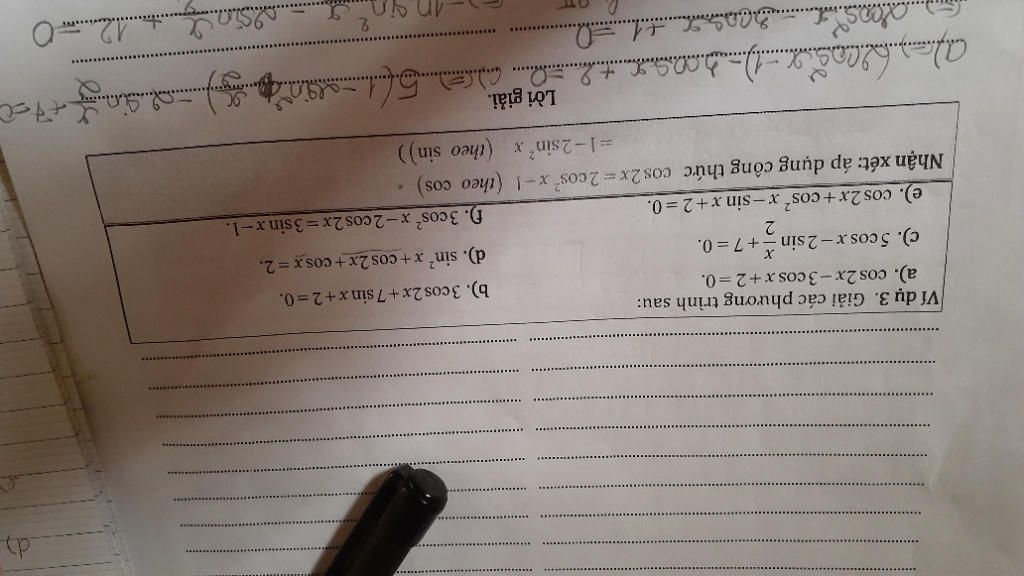 Ví dụ 3. Giải các phương trình sau:
a). cos2x−3cosx+2=0.
b). 3cos2x+7sinx+2=0.
c). 5cosx−2sin x/2+7=0.
d). sin²x+cos2x+cosx=2.
e). cos2x+cos²x−sinx+2=0.
f). 3cos²x−2cos2x=3sinx−1.
Nhận xét: áp dụng công thức cos2x=2cos²x−1 (theo cos)
=1−2sin²x (theo sin))
Lời giải.
a)(=) (2cos²x−1)−3cosx+2=0
c)(=) 5(1−2sin² x/2)−2sin x/2+7=0
(=) 2cos²x−3cosx+1=0
(=)−10sin² x/2−2sin x/2+12=0
d)